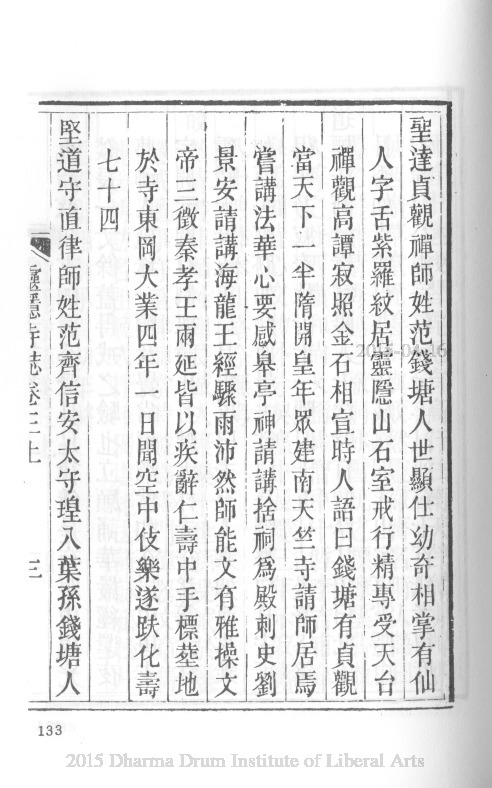 聖達貞觀禪師姓范錢塘人世顯仕幼奇相掌有仙
人字舌紫羅紋居靈隱山石室戒行精專受天台
禪觀高譚寂照金石相宣時人語曰錢塘有貞觀
當天下一半隋開皇年眾建南天竺寺請師居焉
嘗講法華心要感皋亭神請講捨祠爲殿刺史劉
景安請講海龍王經驟雨沛然師能文有雅操文
帝三徵秦孝王兩延皆以疾辭仁壽中手標塟地
於寺東岡大業四年一日聞空中伎樂遂趺化壽
七十四
堅道守直律師姓范齊信安太守瑝八葉孫錢塘人
靈隱寺誌卷三上
三
133
2015 Dharma Drum Institute of Liberal Arts